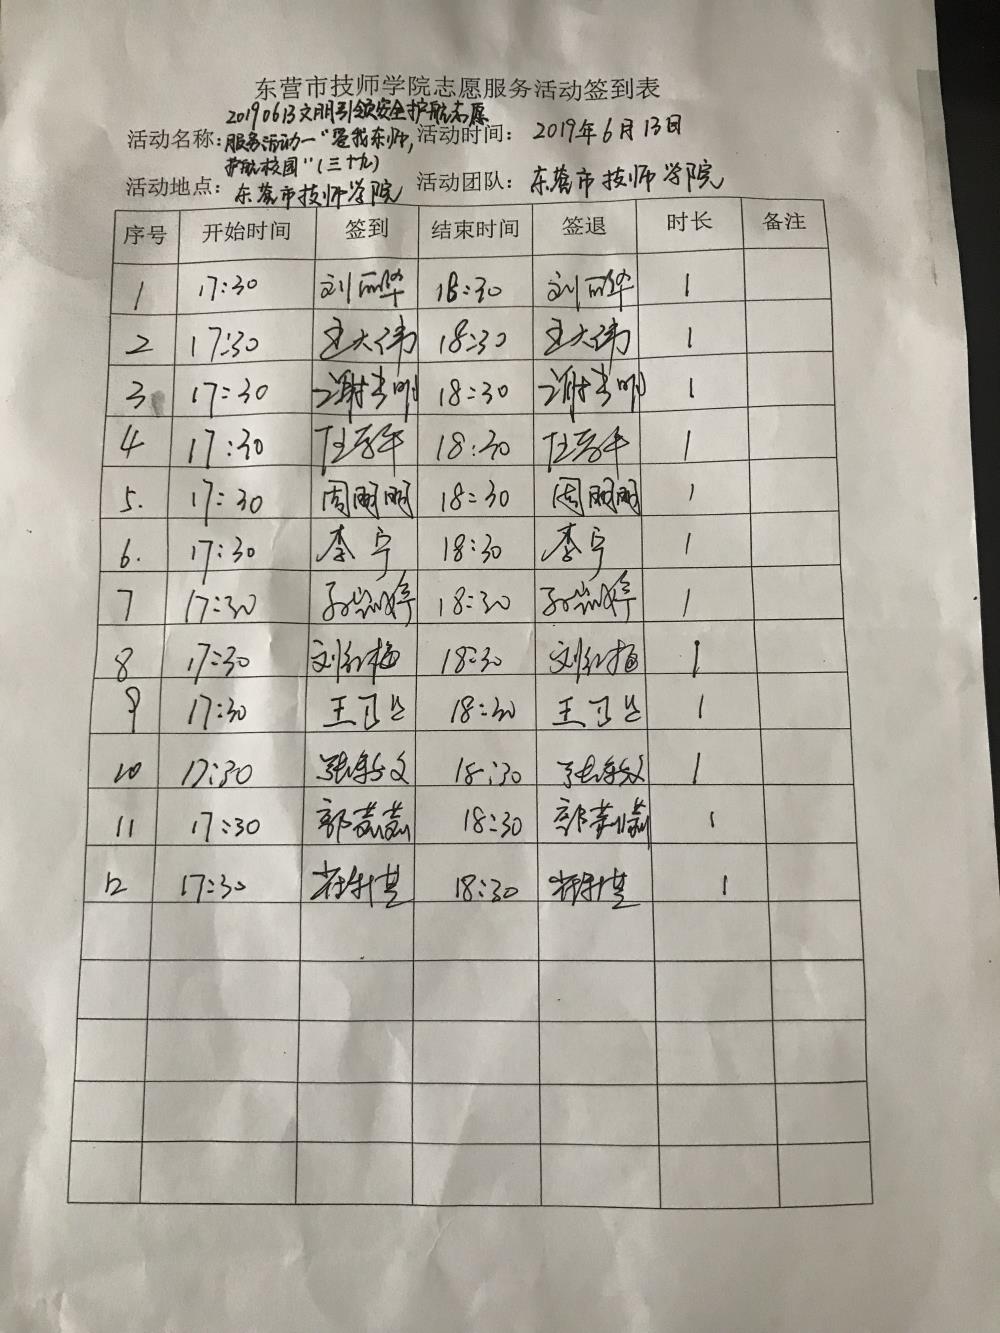 东营市技师学院志愿服务活动签到表
20190613文明引领安全护航志愿
活动名称：服务活动一“爱我东师，活动时间： 2019年6月13日
护航校园”（三十九）
活动地点： 东营市技师学院 活动团队： 东营市技师学院
序号 开始时间 签到 结束时间 签退 时长 备注
1 17:30 刘丽华 18:30 刘丽华 1
2 17:30 王大伟 18:30 王大伟 1
3 17:30 谢 明 18:30 谢 明 1
4 17:30 18:30 1
5. 17:30 周丽丽 18:30 周丽丽 1
6. 17:30 李宁 18:30 李宁 1
7 17:30 孙 婷 18:30 孙 婷 1
8 17:30 刘红梅 18:30 刘红梅 1
9 17:30 王卫兰 18:30 王卫兰 1
10 17:30 张 文 18:30 张 文 1
11 17:30 郭 18:30 郭 1
12 17:30 18:30 1